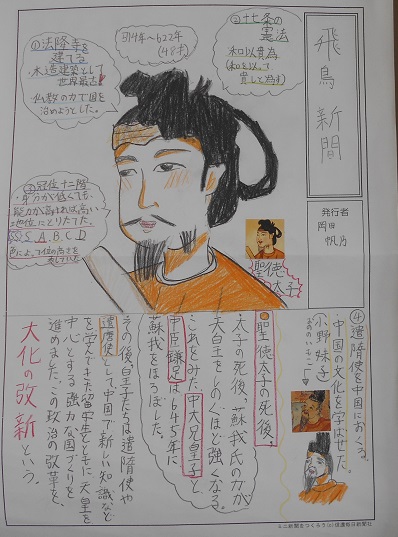 飛鳥新聞
発行者
岡田
帆乃
574年〜622年
(48才)
①法隆寺を
建てる
・木造建築として
世界最古!
・仏教の力で国を
治めようとした。
②十七条の
憲法
和以貴為
(和を以て
貴しと為す)
③冠位十二階
・身分が低くても、
能力が高ければ高い
地位にとりたてた。
S.A.B.C.D
色によって位の高さを
表していた
聖徳
太子
④遣隋使を中国におくる。
・中国の文化を学ばせた。
小野妹子
おののいもこ
聖徳太子の死後、
太子の死後、蘇我氏の力が
天皇をしのぐほど強くなる。
これをみた、中大兄皇子と
中臣鎌足は645年に
蘇我をほろぼした。
その後皇子たちは遣隋使や
遣唐使として、中国で新しい知識など
を学んできた留学生とともに天皇を
中心とする強力な国づくりを
進めました。この政治の改革を、
大化の改新という。